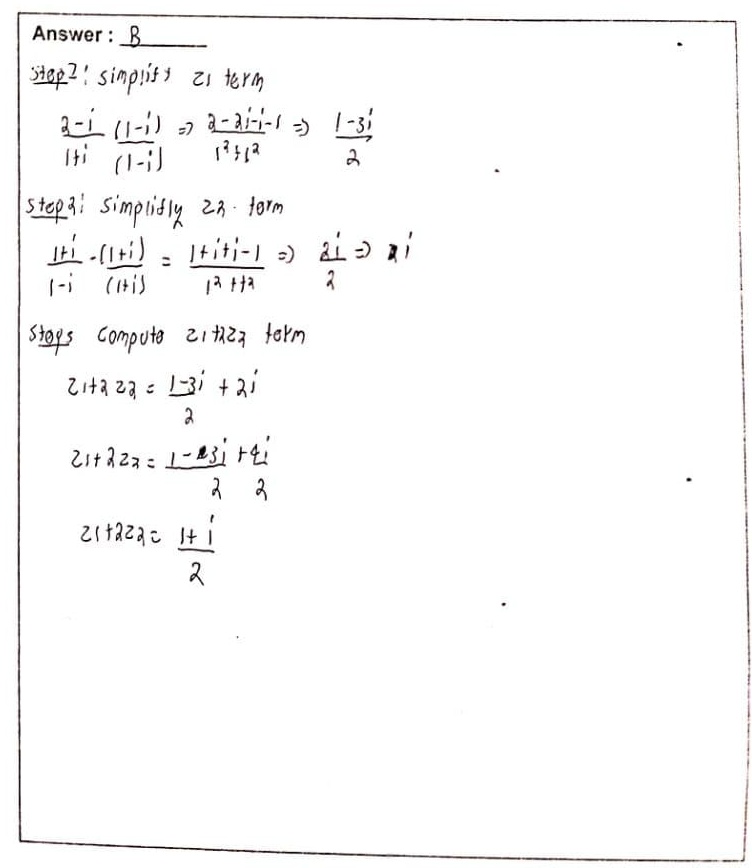 Answer : B
Step2: simplify z1 term
2-i/1+i (1-i)/(1-i) => 2-2i-i-1/1²+1² => 1-3i/2
Step2: simplifly z2. term
1+i/1-i · (1+i)/(1+i) = 1+i+i-1/1²+12 => 2i/2 => i
Steps compute z1+2z2 term
z1+2z2 = 1-3i/2 + 2i
z1+2z2 = 1-3i/2 + 4i/2
z1+2z2 = 1+i/2